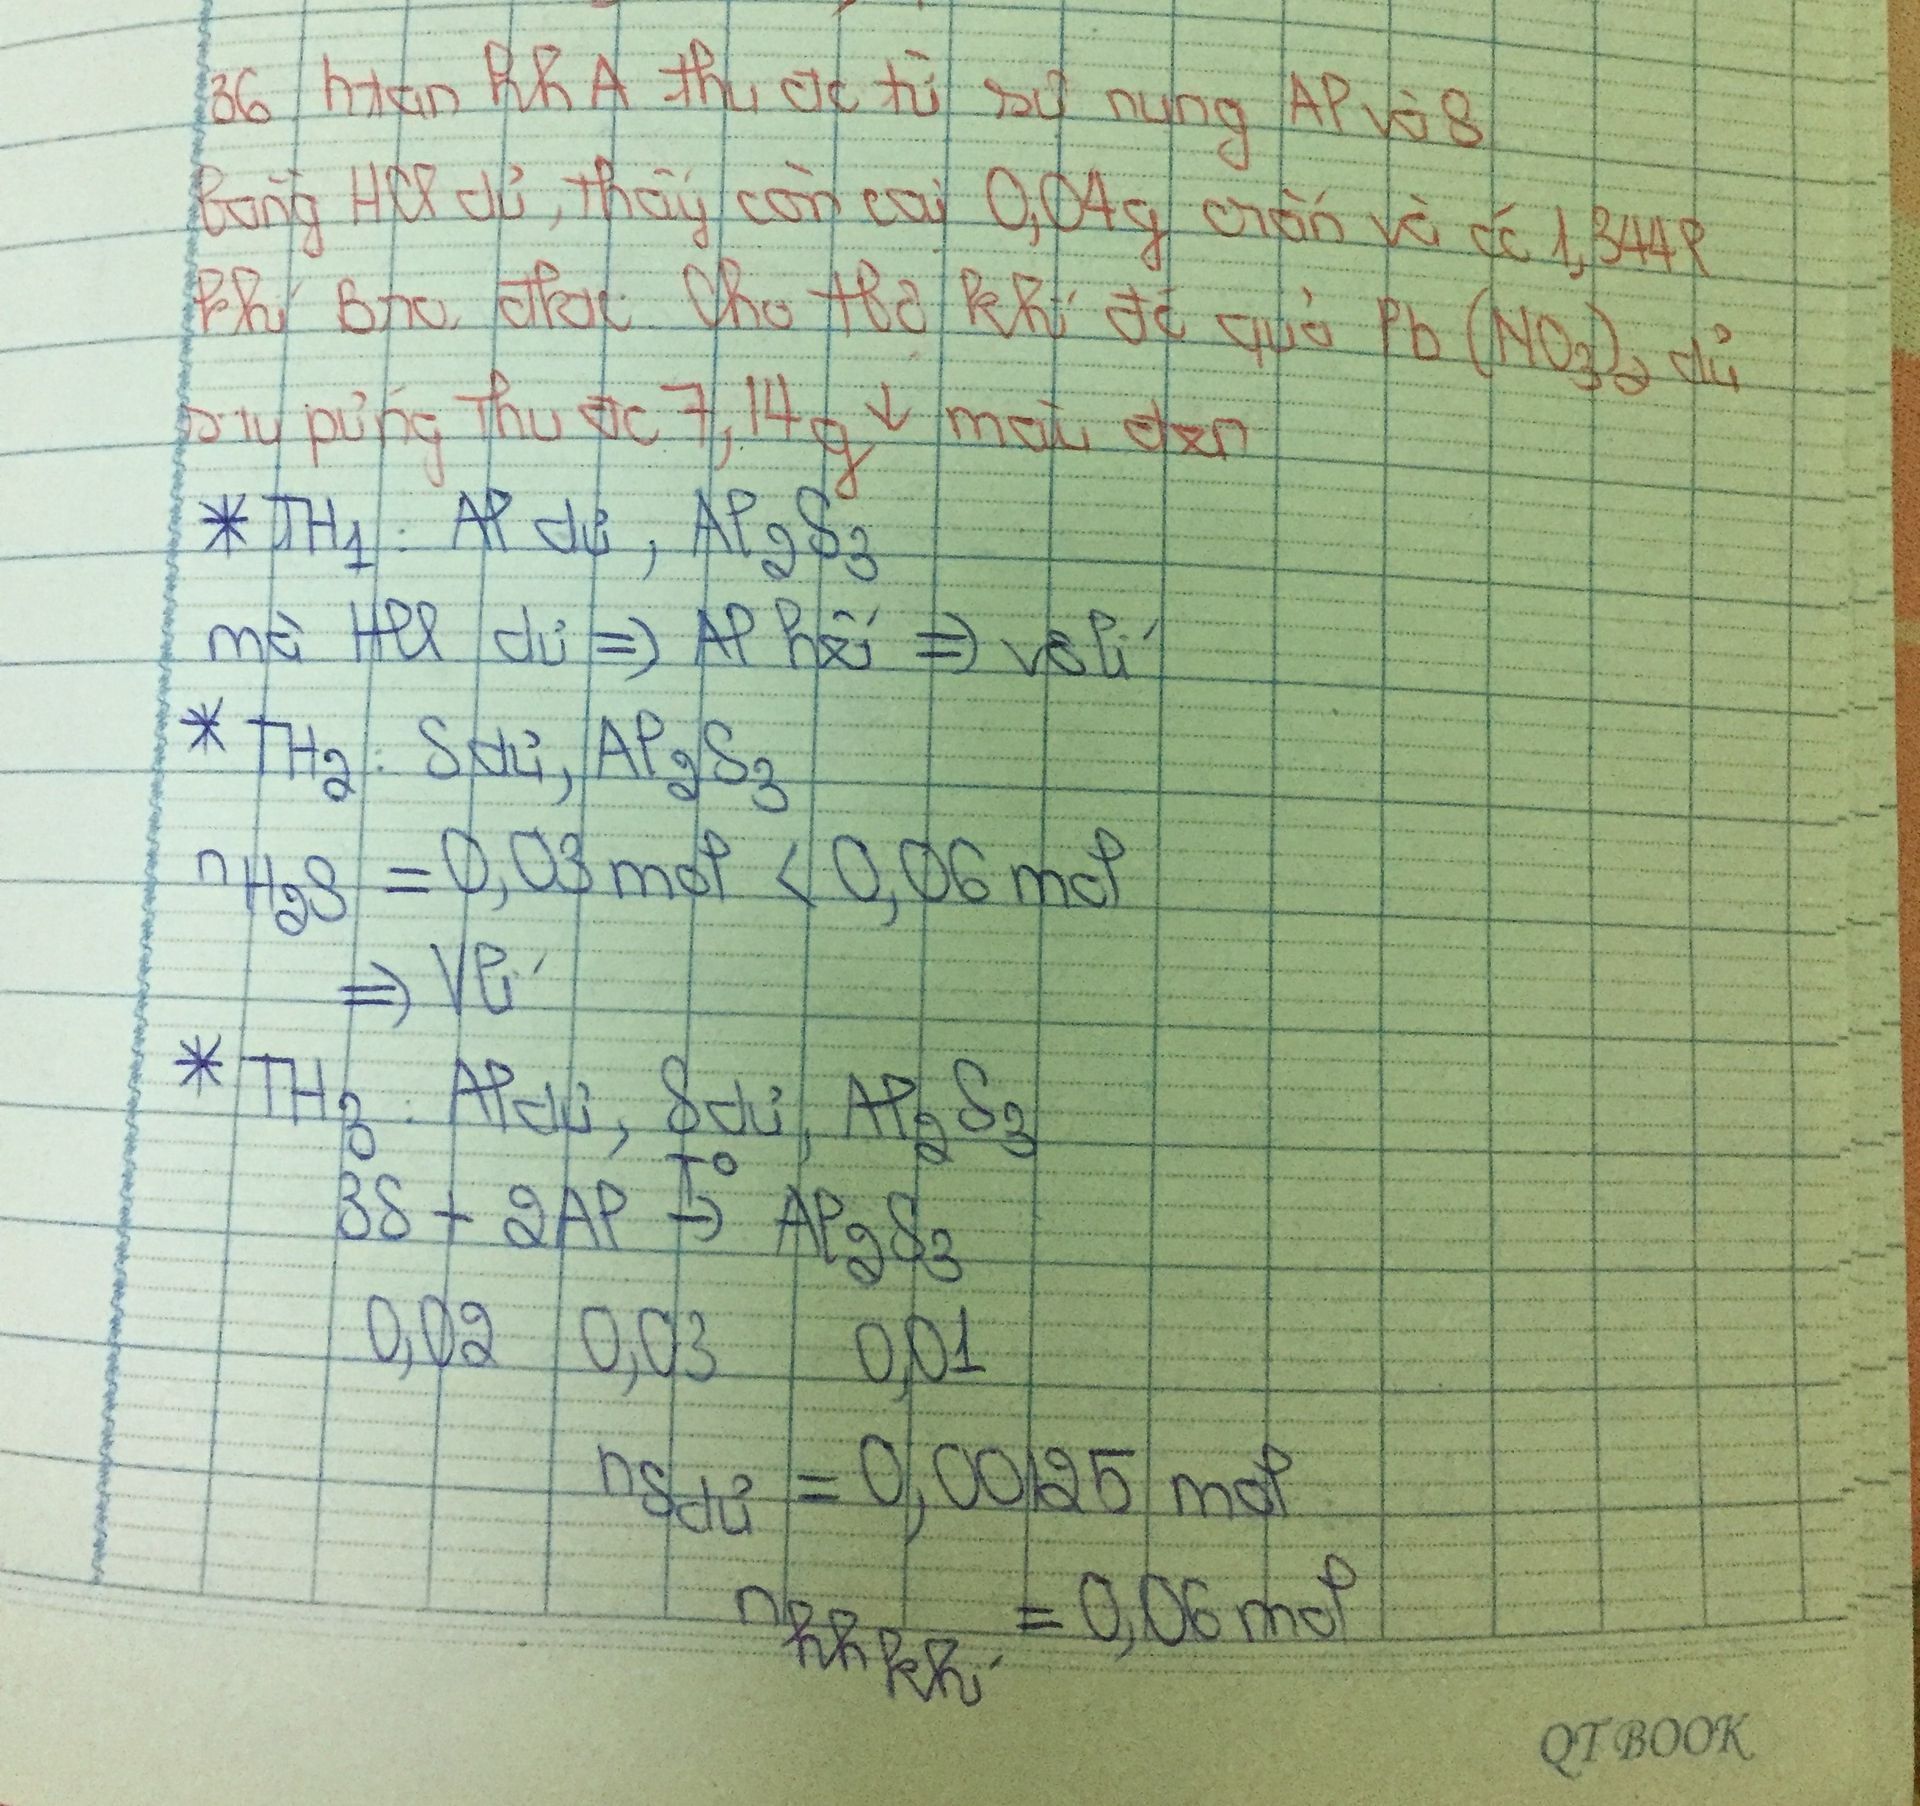 36 htan hh A thu đc từ sự nung Al và S
bằng HCl dư, thấy còn lại 0,04g crắn và có 1,344l
khí bra đktc. Cho tbộ khí đó qua Pb(NO3)2 dư
sau pứng thu đc 7,14g ↓ màu đxn
* TH1: Al dư, Al2S3
mà HCl dư => Al hxĩ => vô lí
* TH2: S dư, Al2S3
nH2S = 0,03 mol < 0,06 mol
=> Vlí
* TH3: Al dư, S dư, Al2S3
3S + 2Al T° → Al2S3
0,02 0,03 0,01
nS dư = 0,00125 mol
nhh khí = 0,06 mol
QT BOOK